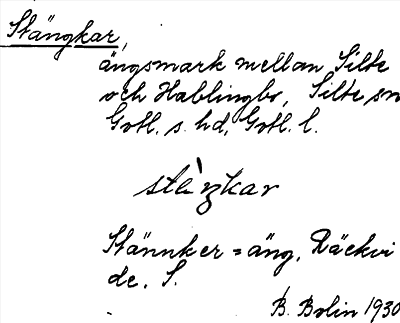 Stängkar,
ängsmark mellan Silte
och Hablingbo, Silte sn
Gotl. s. hd, Gotl. l.
stäŋkar
Stännker = äng, Räckvi
de. S.
B. Bolin 1930